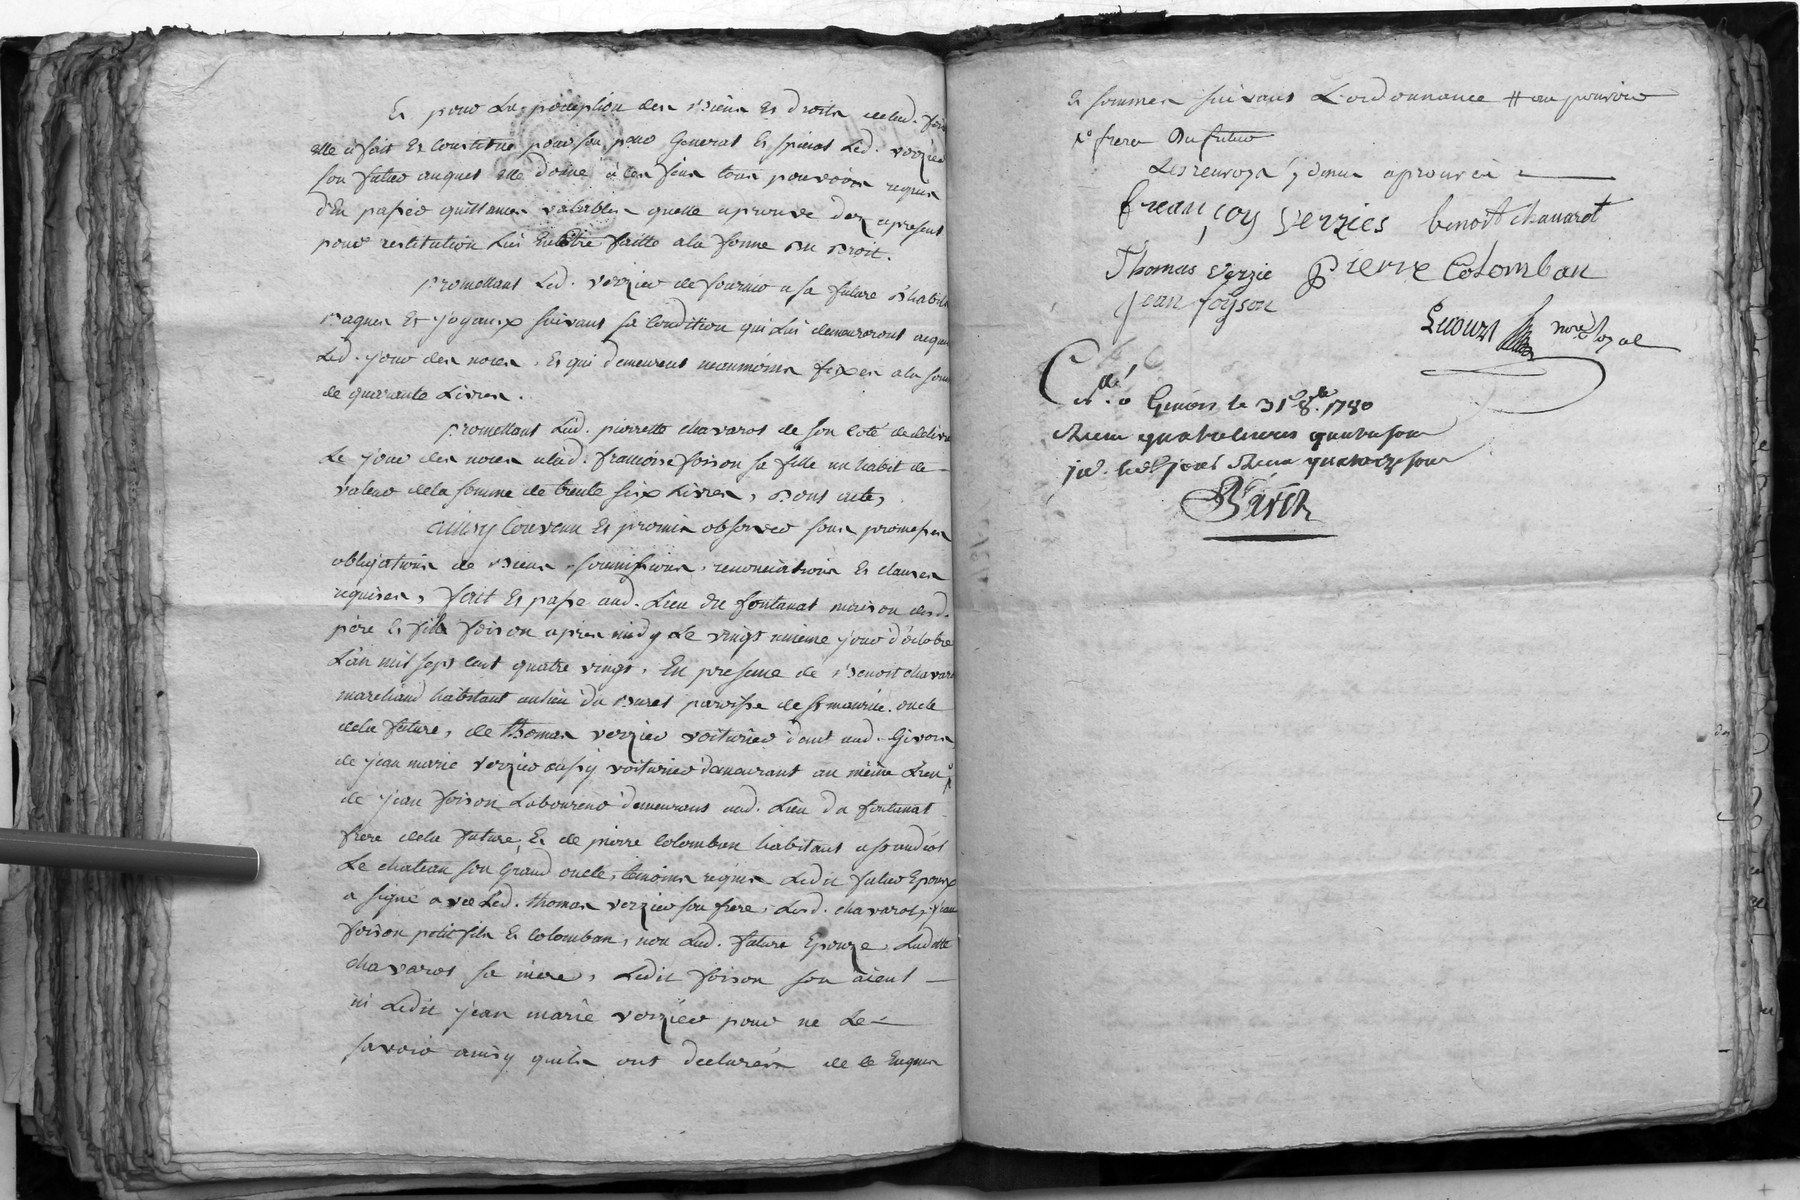 Et pour la perception des biens et droits de lad. foi
elle a fait et constitué pour son pour general et special led. verzier
son futur auquel elle donne à ces fins tous pouvoirs requis
d'en passer quittances valables quelle aprouve dez apresent
pour restitution lui en être faitte a la forme du droit.
promettant led. verzier de fournir a sa future d'habits
bagues et joyaux suivant sa condition qui lui demeureront acquis
led. jour des noces, et qui demeurent neanmoins fixés a la som
de quarante Livres.
promettant lad. pierrette chavarot de son coté de delivre
le jour des noces alad. françoise foison sa fille un habit de
valeur dela somme de trente six Livres, dont acte,
ainsy convenu et promis observer sous promesses
obligations de biens, soumissions, renonciations et clauses
requises, fait et passé aud. Lieu du fontanat maison desd.
père et fille foison apres midy le vingt nuieme jour d'octobre
L'an mil sept cent quatre vingt, En presence de benoit chavar
marchand habitant au lieu du buret paroisse de st maurice oncle
dela future, de thomas verzier voiturier demt aud. Givors
de jean marie verzier aussy voiturier demeurant au même Lieu
de jean foison Laboureur demeurant aud. Lieu du fontanat
frere dela future, et de pierre colomban habitant a st andéol
Le chateau son grand oncle, temoins requis Ledit futur Epoux
a signé avec led. thomas verzier son frere, lesd. chavarot, jean
foison petit fils et colomban, non lad. future Epouze, Ladtte
chavarot sa mere, Ledit foison son aieul
ni Ledit jean marie verzier pour ne le
savoir ainsy quils ont declarés de ce Enquis
et sommés suivant L'ordonnance # au pouvoir
xo frere du futur
Les renvoys cy dessus aprouvés
françoy verzies benoist chavarot
Thomas verzie pierre colomban
jean foyson
Lecourt nore Royal
Clé
a Givors le 31 8bre 1780
Reçu quatre livres quatre sous
quatorze sous